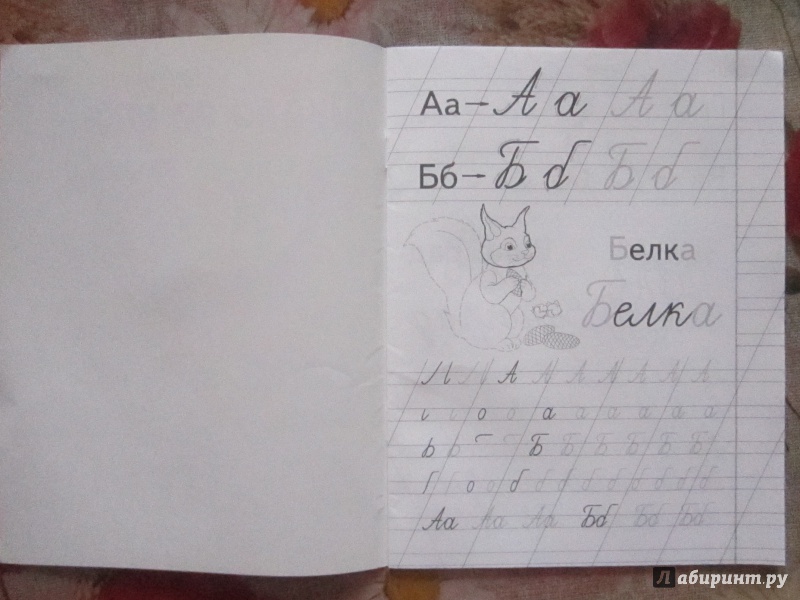 Аа→ А а А а
Бб→ Б б Б б
Белка
Белка
А А А А А А А
о о а а а а а а
ь ь Б Б Б Б Б Б
о о б б б б б б б б
Аа Аа Аа Бб Бб Бб
Лабиринт.ру